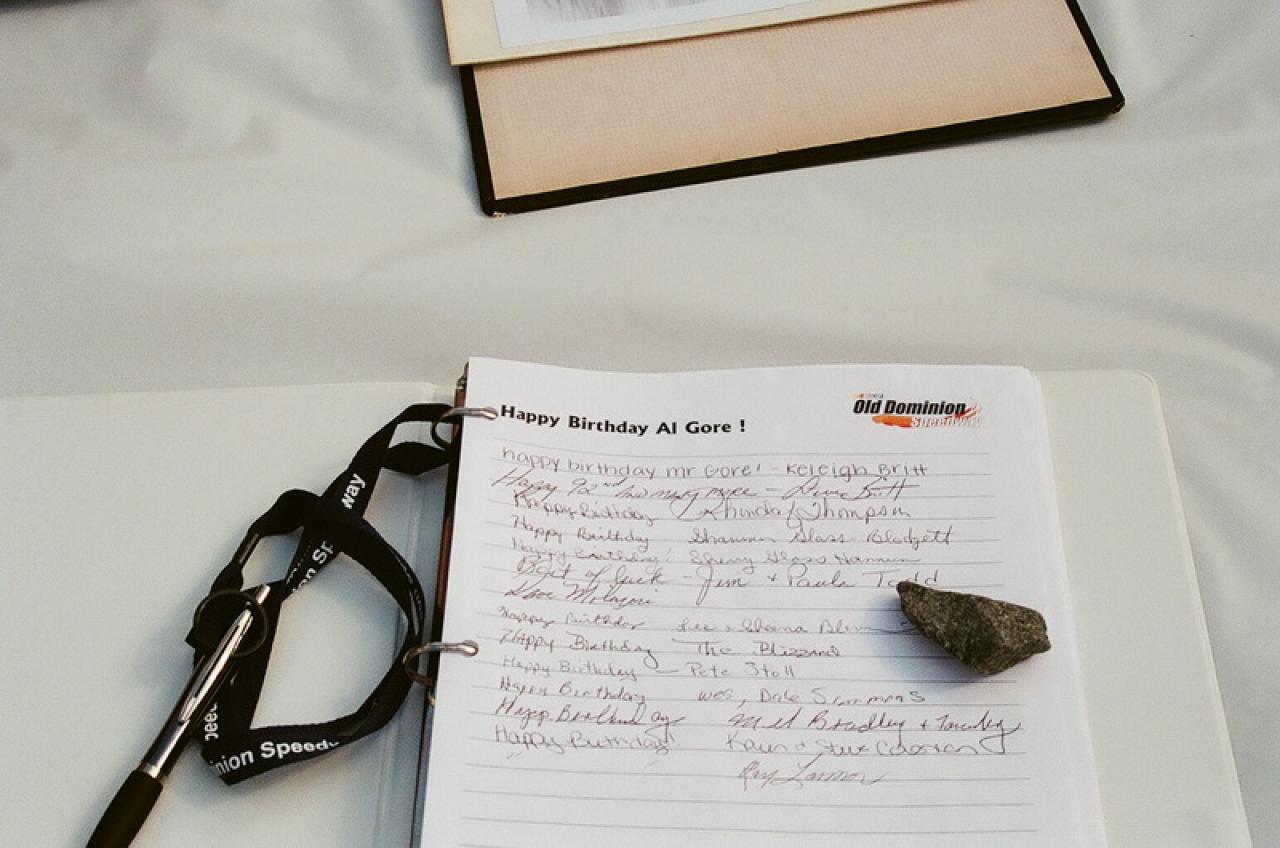 Happy Birthday Al Gore !
Old Dominion
Speedway
happy birthday mr Gore! - Keleigh Britt
Happy 92nd how many more - Britt
Happy Birthday Rhonda J Thompson
Happy Birthday Shannon Glass Blodgett
Happy Birthday! Sherry Glass Hannum
Best of luck - Jim & Paula Todd
Dave
Happy Birthday Lee & Sheena
Happy Birthday The Blizzard
Happy Birthday - Pete Stoll
Happy Birthday Wes, Dale Simmons
Happy Birthday Bradley & Family
Happy Birthday! Karen & Steve
Ray
way
on Sp
peed
inion Speedw